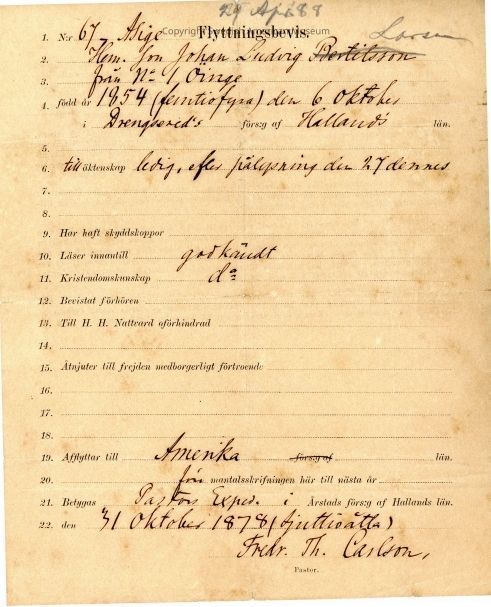 29 Apr. 88
Flyttningsbevis.
1. N:r 67, Asige
2. Hem. Son Johan Ludvig Bertilsson Larsen
3. från No 1 Öinge
4. född år 1854 (femtiofyra) den 6 Oktober
i Drengsered's förs:g af Hallands län.
5.
6. till äktenskap ledig, efter pålysning den 27 dennes
7.
8.
9. Har haft skyddskoppor
10. Läser innantill godkändt
11. Kristendomskunskap do
12. Bevistat förhören
13. Till H. H. Nattvard oförhindrad
14.
15. Åtnjuter till frejden medborgerligt förtroende
16.
17.
18.
19. Afflyttar till Amerika förs:g af län.
20. från mantalsskrifningen här till nästa år
21. Betygas Pastors Exped. i Årstads förs:g af Hallands län.
22. den 31 Oktober 1878 (sjuttioåtta)
Fredr. Th. Carlson,
Pastor.